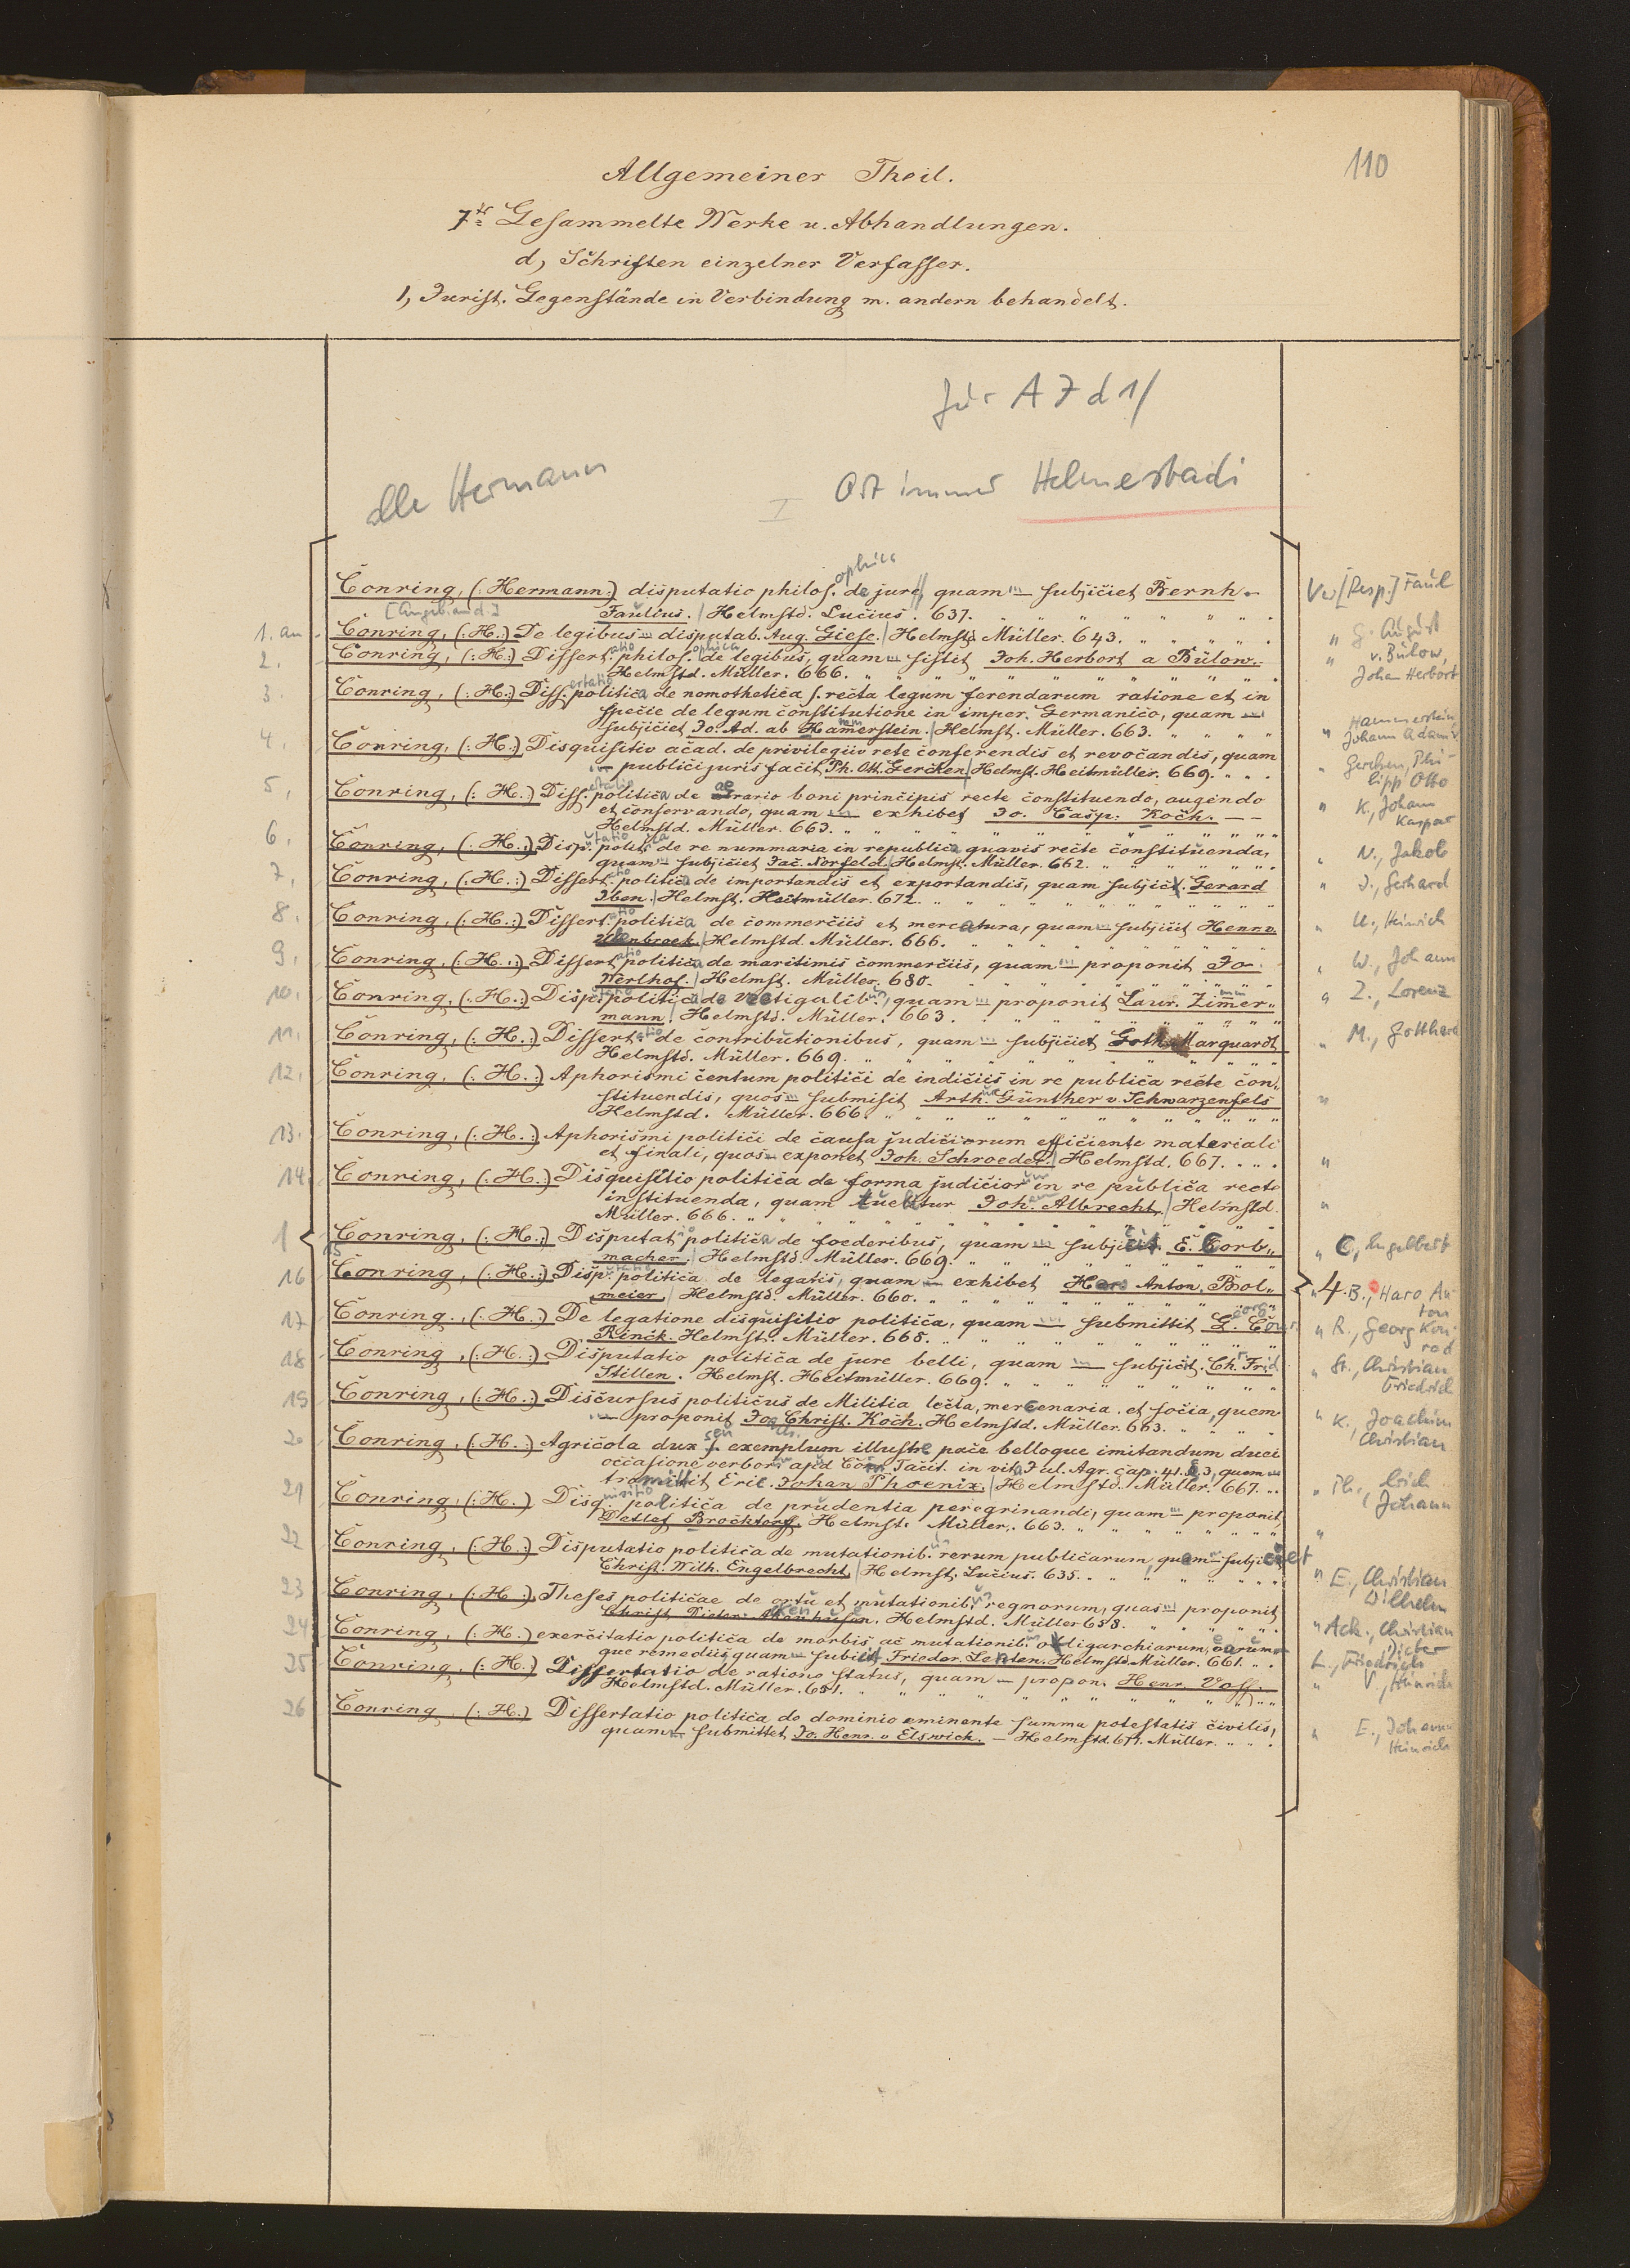 110
Allgemeiner Theil.
7tr Gesammelte Werke u. Abhandlungen.
d, Schriften einzelner Verfasser.
1, Jurist. Gegenstände in Verbindung m. andern behandelt.
für A 7 d 1/
alle Hermann
Ort immer Helmestadi
Conring, (: Hermann:) disputatio philosophica de jure, quam — subjiciet Bernh.
Ver[Resp.] Faul
[Angeb. and.]
Faulius. / Helmstd. Lucius. 637.
1. an Conring, (: H.:) De legibus — disputab. Aug. Giese. / Helmstd. Müller. 643. " G. August
2. Conring, (: H.:) Dissertatio philosophica de legibus, quam — sistit Joh. Herbort a Bülow. " v. Bülow,
Helmstd. Müller. 666. Johan Herbort
3. Conring, (: H.:) Dissertatio politica de nomothetica s. recta legum ferendarum ratione et in
specie de legum constitutione in imper. Germanico, quam — Hammerstein,
subjiciet Jo. Ad. ab Hammerstein. / Helmst. Müller. 663. " Johann Adam v.
4. Conring, (: H.:) Disquisitio acad. de privilegiis rete conferendis et revocandis, quam
— publici juris facit Ph. Ott. Gercken / Helmst. Heitmüller. 669. " Gercken, Phi-
lipp Otto
5. Conring, (: H.:) Dissertatio politica de aerario boni principis recte constituendo, augendo
et conservando, quam — exhibet Jo. Casp. Koch. — " K., Johann
Helmstd. Müller. 663. Kaspar
6. Conring, (: H.:) Disputatio politica de re nummaria in republica quavis recte constituenda,
quam — subjiciet Jac. Norfeld. / Helmst. Müller. 662. " N., Jakob
7. Conring, (: H.:) Dissertatio politica de importandis et exportandis, quam subjicit. Gerard
Iben. / Helmst. Heitmüller. 672. " I., Gerhard
8. Conring, (: H.:) Dissertatio politica de commerciis et mercatura, quam — subjicit Henr.
Ulenbroek. / Helmstd. Müller. 666. " U., Heinrich
9. Conring, (: H.:) Dissertatio politica de maritimis commerciis, quam — proponit Jo.
Werlhof. / Helmst. Müller. 680. " W., Johann
10. Conring, (: H.:) Disputatio politica de vectigalibus, quam — proponit Laur. Zimmer-
mann. / Helmstd. Müller. 663. " Z., Lorenz
11. Conring, (: H.:) Dissertatio de contributionibus, quam — subjiciet Goth. Marquardt " M., Gotthard
Helmstd. Müller. 669.
12. Conring, (: H.:) Aphorismi centum politici de indiciis in re publica recte con-
stituendis, quos — submisit Arth. Günther v. Schwarzenfels "
Helmstd. Müller. 666.
13. Conring, (: H.:) Aphorismi politici de causa judiciorum efficiente materiali
et finali, quos — exponet Joh. Schroeder. / Helmstd. 667. "
14. Conring, (: H.:) Disquisitio politica de forma judiciorum in re publica recte
instituenda, quam tuebitur Joh. Albrecht, / Helmstd. "
Müller. 666.
15 Conring, (: H.:) Disputatio politica de foederibus, quam — subjicit. E. Corb-
macher. / Helmstd. Müller. 669. " C., Engelbert
16 Conring, (: H.:) Disputatio politica de legatis, quam — exhibet Haro Anton. Bol-
meier / Helmstd. Müller. 660. " 4. B., Haro An-
ton
17 Conring, (: H.:) De legatione disquisitio politica, quam — submittit Georg Conr.
Rinck. Helmst. Müller. 668. " R., Georg Kon-
rad
18 Conring, (: H.:) Disputatio politica de jure belli, quam — subjicit. Chr. Frid.
Stillen. Helmst. Heitmüller. 669. " St., Christian
Friedrich
19 Conring, (: H.:) Discursus politicus de Militia lecta, mercenaria et socia, quem
— proponit Joa Christ. Koch. Helmstd. Müller. 663. " K., Joachim
Christian
20 Conring, (: H.:) Agricola dux seu exemplum illustre pace belloque imitandum duci
occasione verborum apud Corn. Tacit. in vita Jul. Agr. cap. 41. § 3, quem —
tramittit Eric. Johan Phoenix. / Helmstd. Müller. 667. " Ph., Erich
Johann
21 Conring, (: H.) Disquisitio politica de prudentia peregrinandi, quam — proponit
Detlef Brocktorff. Helmst. Müller. 663. "
22 Conring, (: H.:) Disputatio politica de mutationib. rerum publicarum, quam — subjiciet
Christ. Wilh. Engelbrecht, / Helmst. Lucius. 635. " E., Christian
Wilhelm
23 Conring, (: H.:) Theses politicae de ortu et mutationib. regnorum, quas — proponit
Christ. Dieter. Akenhusen. Helmstd. Müller 658. " Ack., Christian
Dieter
24 Conring, (: H.:) exercitatio politica de morbis ac mutationib. oligarchiarum, earum-
que remediis, quam — subiicit Frieder. Lenten. Helmstd. Müller. 661. L., Friedrich
25 Conring, (: H.:) Dissertatio de ratione status, quam — propon. Henr. Voss.
Helmstd. Müller. 651. " V., Heinrich
26 Conring, (: H.:) Dissertatio politica de dominio eminente summa potestatis civilis,
quam — submittet, Jo. Henr. v Elswich. — Helmstd. 677. Müller. " E., Johann
Heinrich